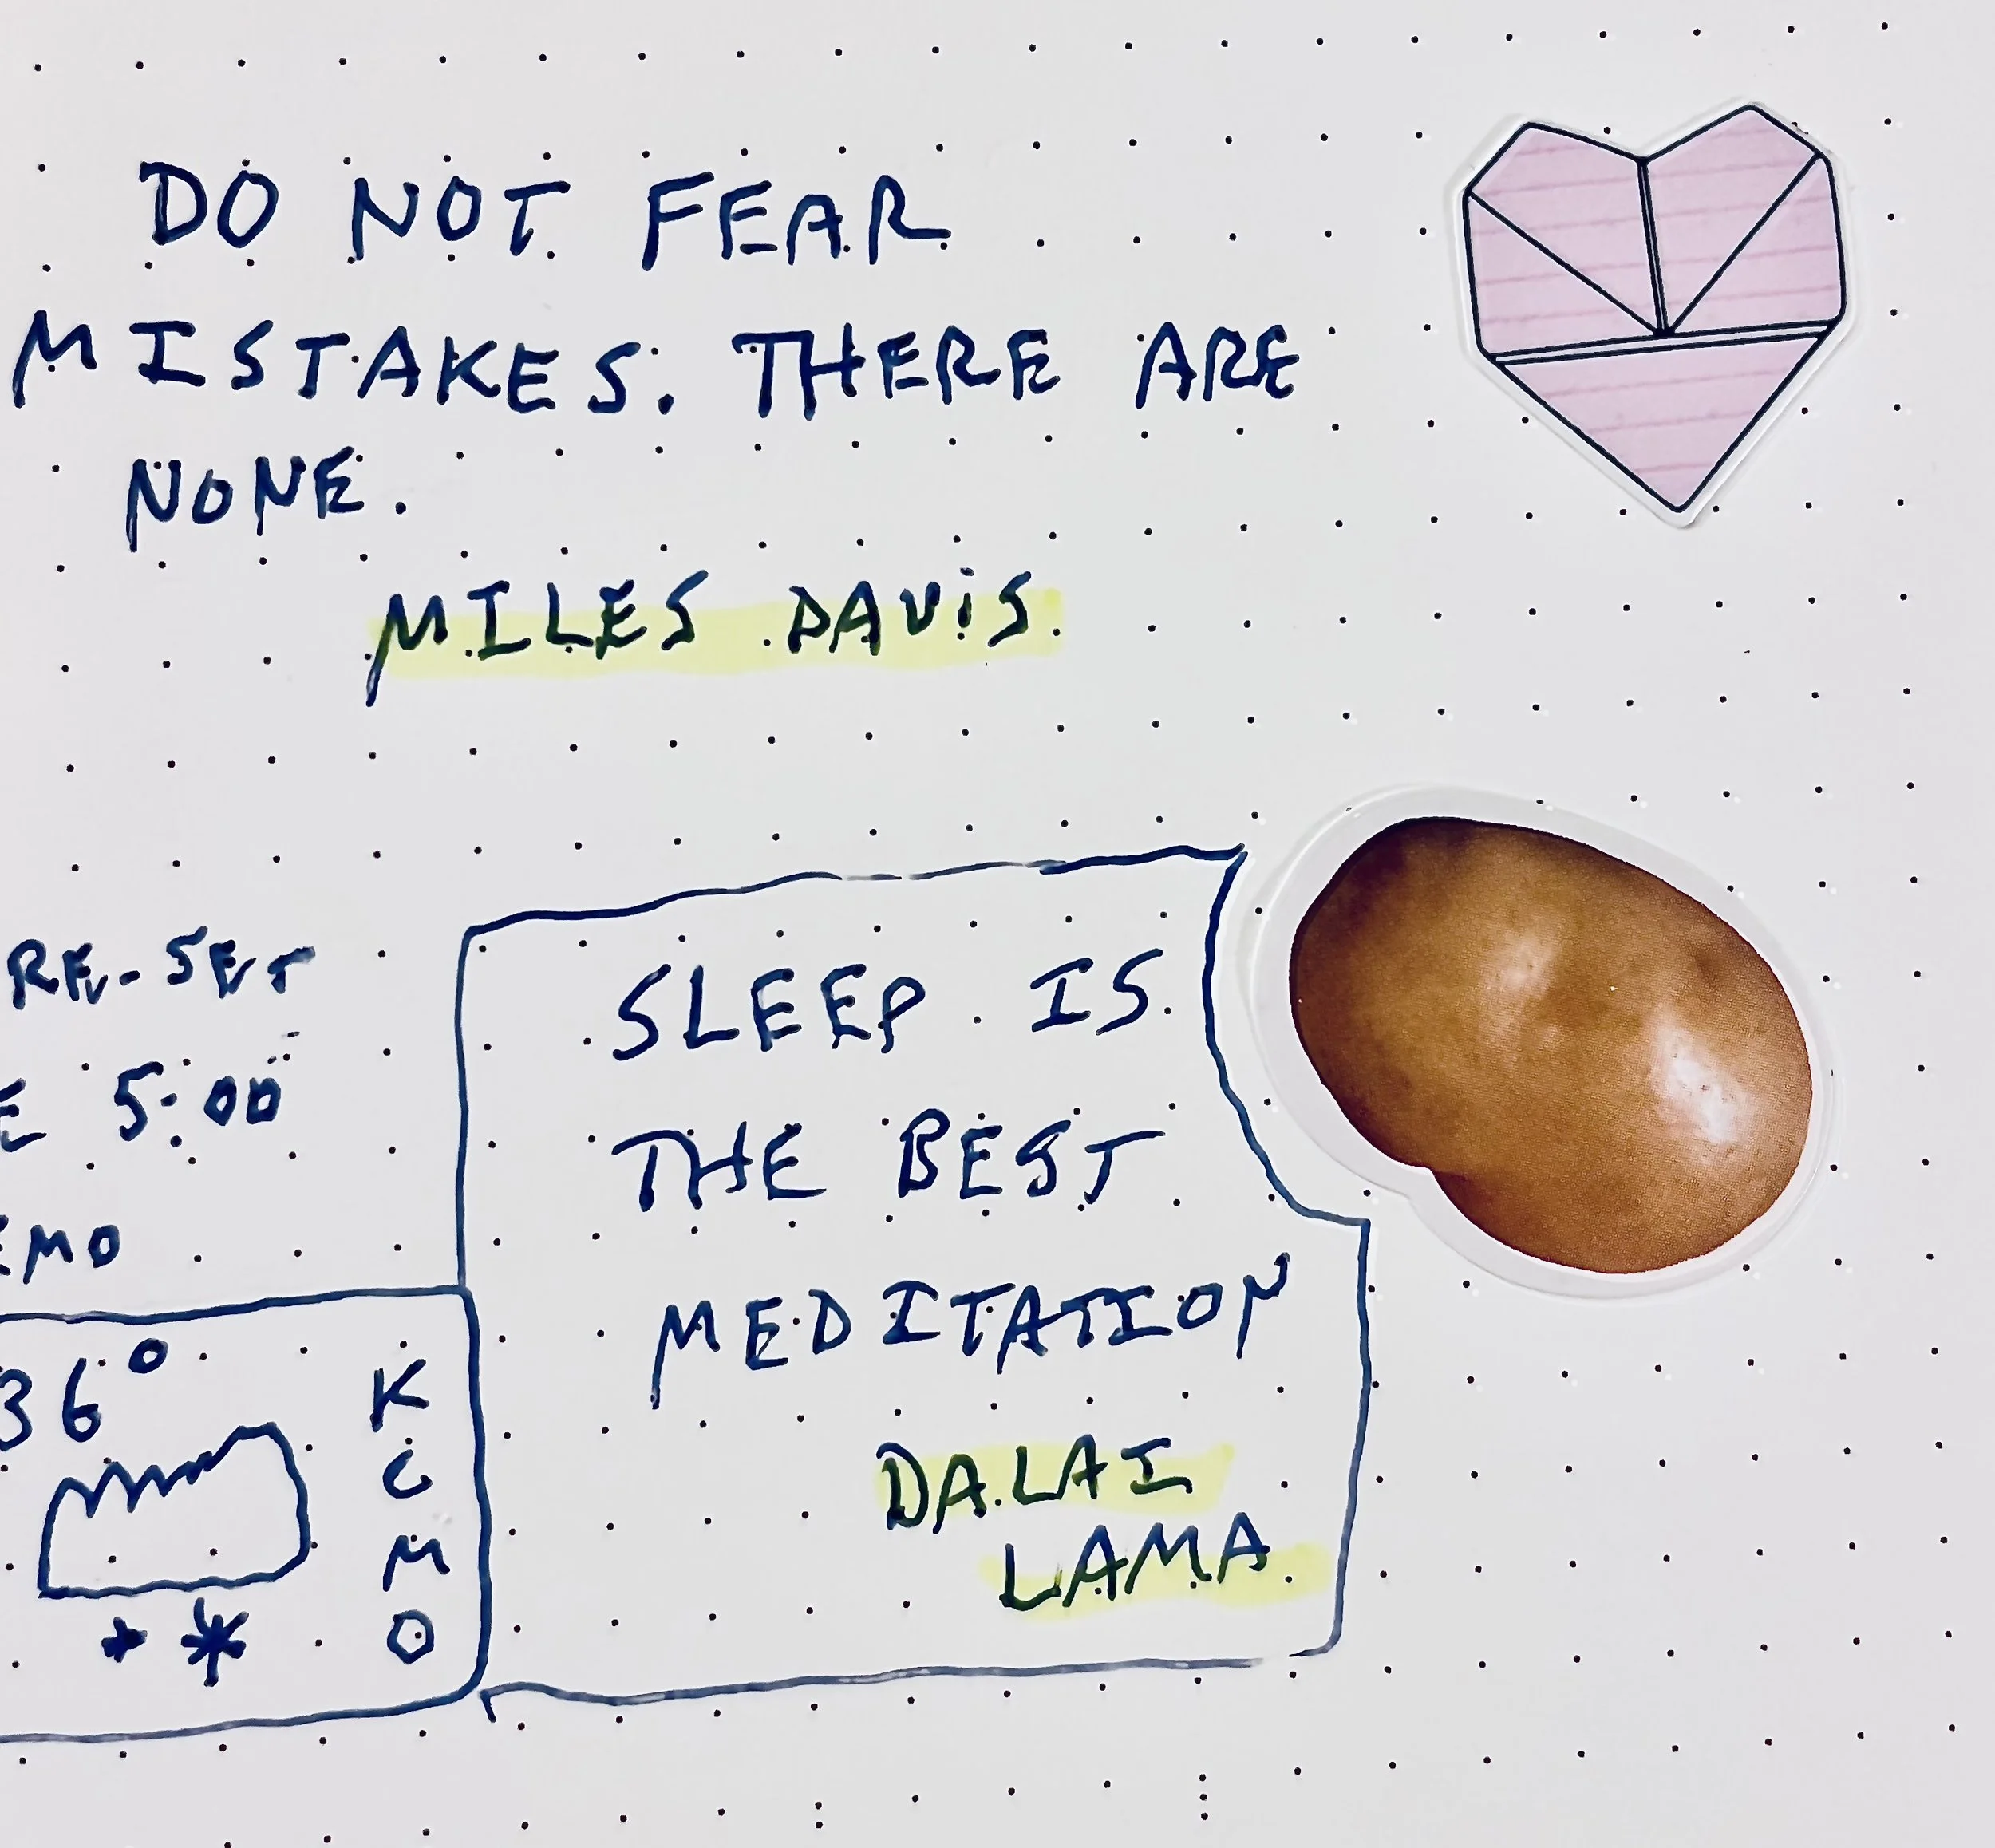 DO NOT FEAR
MISTAKES. THERE ARE
NONE.
MILES DAVIS
RE-SET
5:00
SLEEP IS
THE BEST
MEDITATION
DALAI
LAMA
36°
K
C
M
O